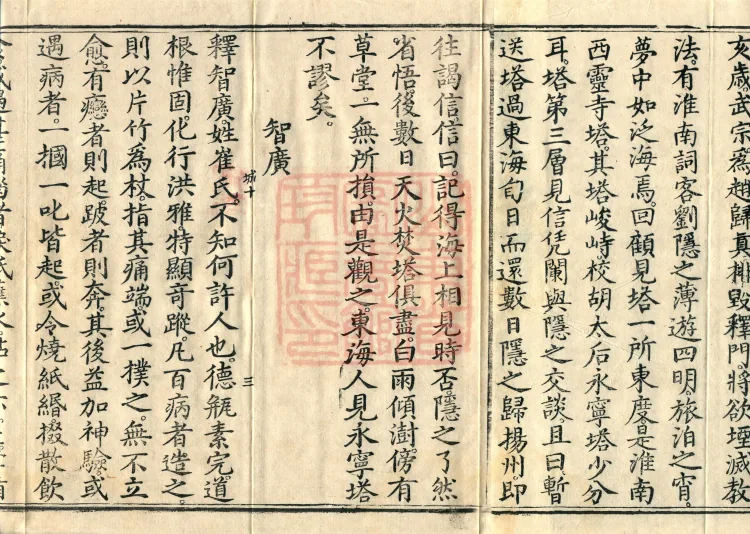 亥歲武宗爲趙歸真排毀釋門將欲堙滅教
法。有淮南詞客劉隱之薄遊四明。旅泊之宵。
夢中如泛海焉。回顧見塔一所東度。是淮南
西靈寺塔。其塔峻峙。校胡太后永寧塔少分
耳。塔第三層見信凭闌與隱之交談。且曰。暫
送塔過東海旬日而還數日隱之歸揚州。即
往謁信信曰。記得海上相見時否隱之了然
省悟後數日天火焚塔俱盡。白雨傾澍。傍有
草堂。一無所損。由是觀之。東海人見永寧塔
不謬矣。
智廣
城十
三
釋智廣。姓崔氏。不知何許人也。德瓶素完。道
根惟固。化行洪雅。特顯奇蹤。凡百病者造之。
則以片竹爲杖。指其痛端。或一撲之。無不立
愈。有癵者則起。跛者則奔。其後益加神驗。或
遇病者。一摑一叱皆起。或令燒紙緡掇散飲